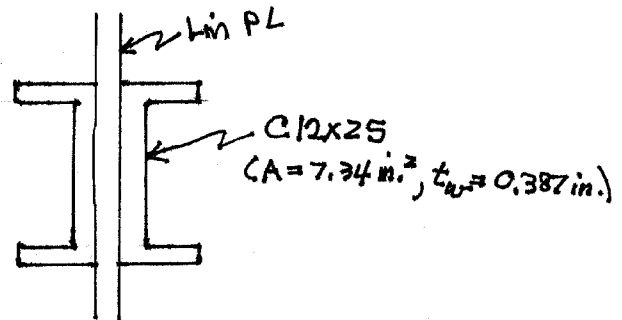 1 in PL
C12x25
(A = 7.34 in.², tw = 0.387 in.)